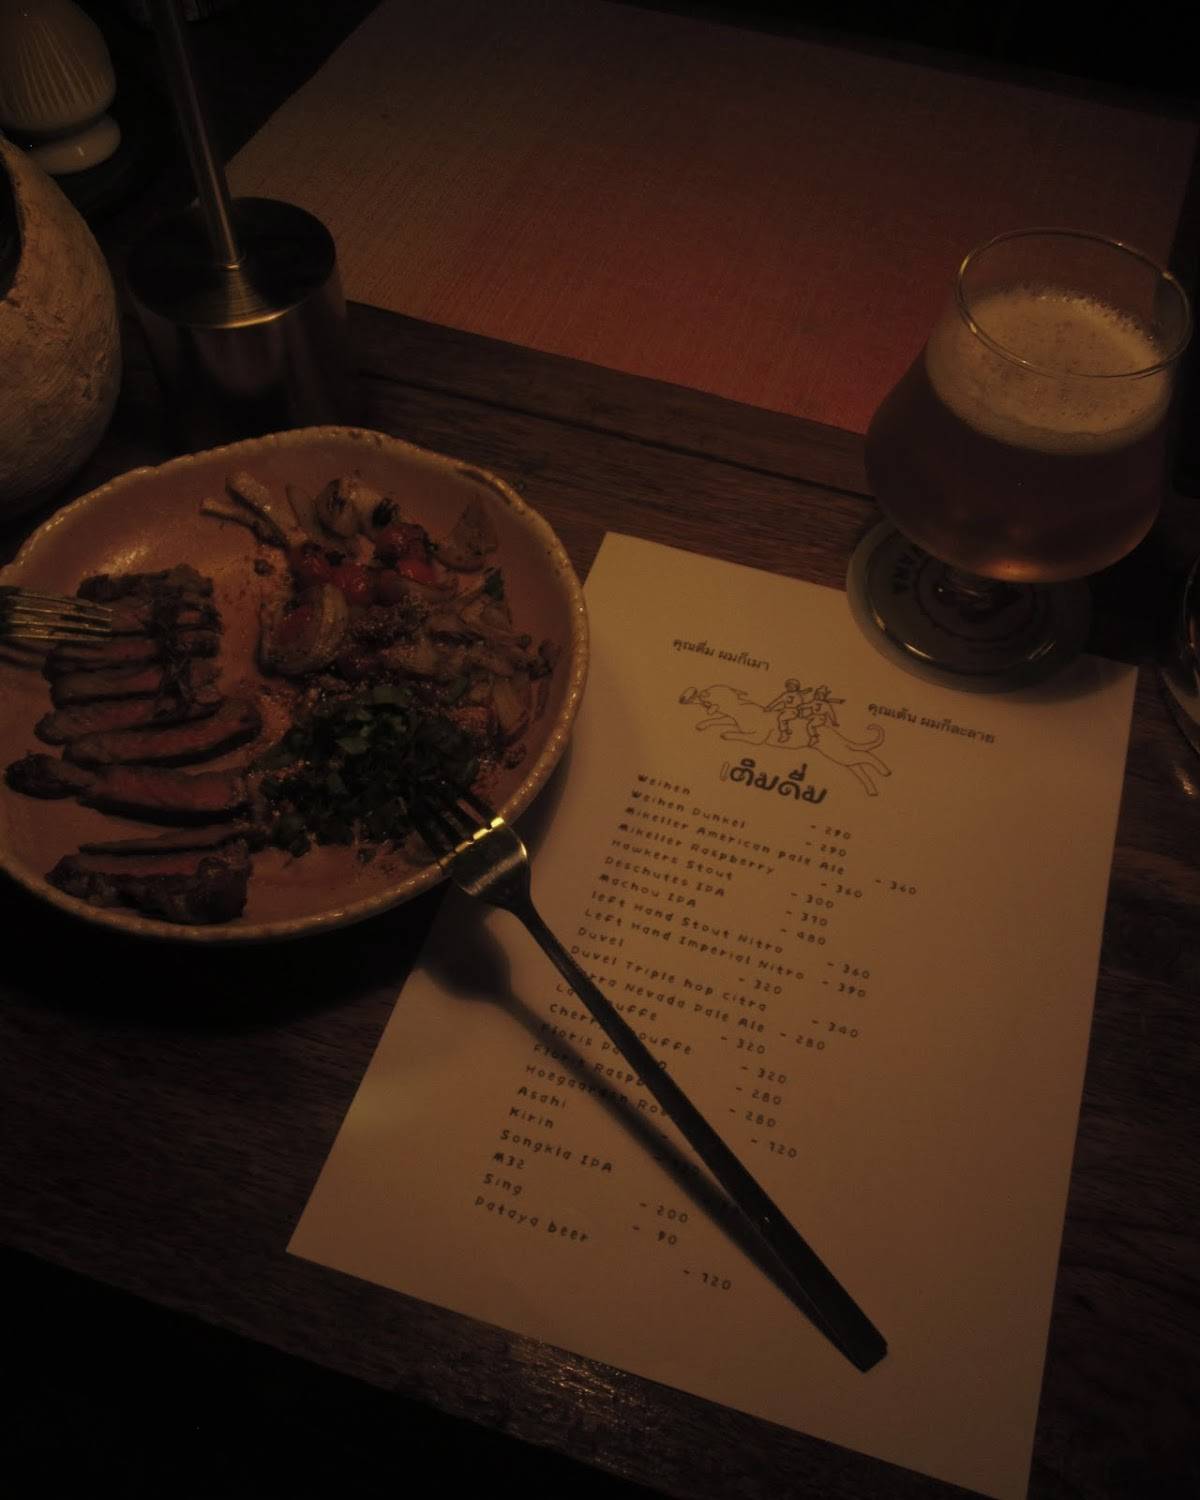 คุณดื่ม ผมก็เมา
คุณเต้น ผมก็ละลาย
เติมดื่ม
Weihen - 290
Weihen Dunkel - 290
Mikeller American pale Ale - 360
Mikeller Raspberry - 360
Hawkers Stout - 300
Deschutes IPA - 310
Machou IPA - 480
left Hand Stout Nitro - 360
Left Hand Imperial Nitro - 390
Duvel - 320
Duvel Triple hop citra - 340
Nevada pale Ale - 280
La - 320
- 320
Floris - 280
Floris - 280
- 120
Asahi
Kirin
Songkla IPA
M32 - 200
Sing - 90
Pataya beer - 120